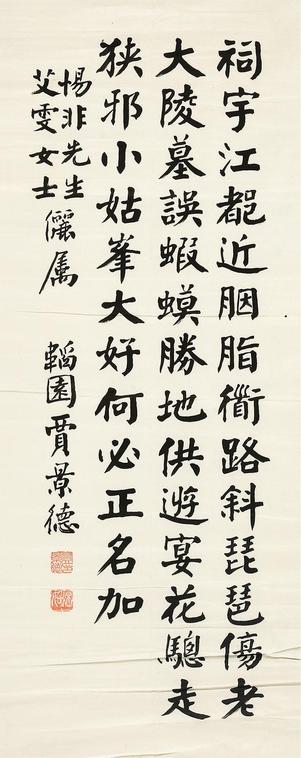 祠宇江都近胭脂衖路斜琵琶傷老
大陵墓誤蝦蟆勝地供遊宴花驄走
狹邪小姑峯大好何必正名加
惕非先生
艾雯女士儷属
韜園賈景德